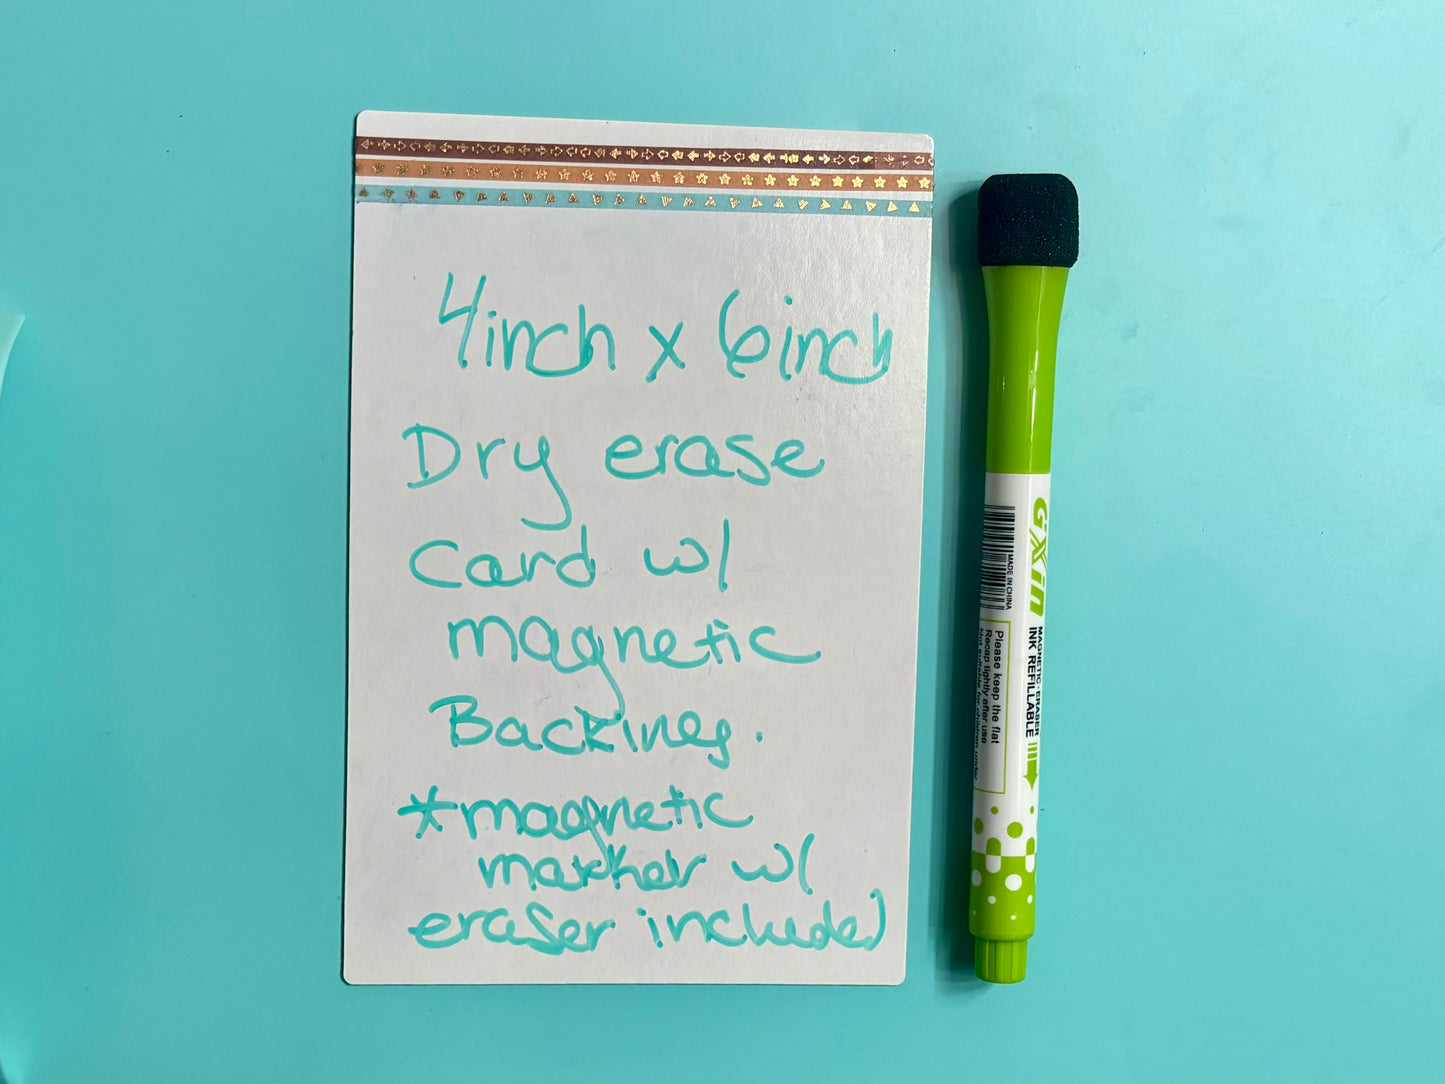 4inch x 6inch
Dry erase
Card w/
magnetic
Backing.
*magnetic
marker w/
eraser included
GXin
MAGNETIC·ERASER
INK REFILLABLE
MADE IN CHINA
Please keep the flat
Recap tightly after use
Not suitable for children under